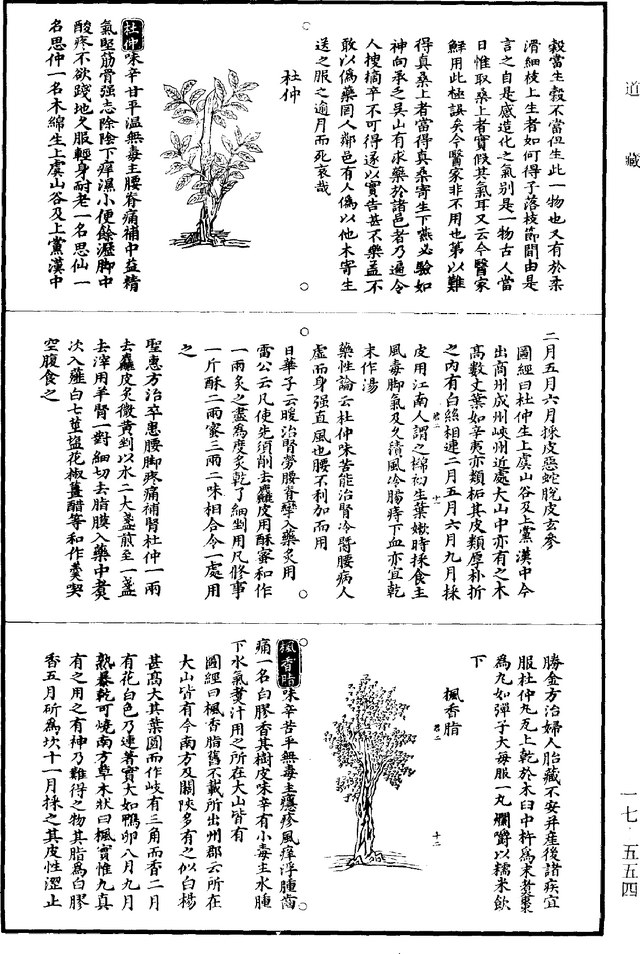 道藏
穀當生穀不當但生此一物也又有於柔
滑細枝上生者如何得子落枝節間由是
言之自是感造化之氣别是一物古人當
日惟取桑上者實假其氣耳又云今醫家
鮮用此極誤矣今醫家非不用也第以難
得真桑上者當得真桑寄生下嚥必驗如
神向承乏吴山有求藥於諸邑者乃遍令
人搜摘卒不可得遂以實告甚不樂蓋不
敢以僞藥罔人鄰邑有人僞以他木寄生
送之服之逾月而死哀哉
杜仲
杜仲味辛甘平溫無毒主腰脊痛補中益精
氣堅筋骨强志除陰下癢濕小便餘瀝脚中
酸疼不欲踐地久服輕身耐老一名思仙一
名思仲一名木綿生上虞山谷及上黨漢中
二月五月六月採皮惡蛇脫皮玄參
圖經曰杜仲生上虞山谷及上黨漢中今
出商州成州峽州近處大山中亦有之木
高數丈葉如辛夷亦類柘其皮類厚朴折
之内有白絲相連二月五月六月九月採
皮用江南人謂之檰初生葉嫩時採食主
風毒脚氣及久積風冷腸痔下血亦宜乾
末作湯
藥性論云杜仲味苦能治腎冷䐴腰病人
虛而身强直風也腰不利加而用
日華子云暖治腎勞腰脊攣入藥炙用
雷公云凡使先須削去麤皮用酥蜜和作
一兩炙之盡爲度炙乾了細剉用凡修事
一斤酥二兩蜜三兩二味相合令一處用
之
聖惠方治卒患腰脚疼痛補腎杜仲一兩
去麤皮炙微黄剉以水二大盞煎至一盞
去滓用羊腎一對細切去脂膜入藥中煮
次入薤白七莖鹽花椒薑醋等和作羮喫
空腹食之
勝金方治婦人胎藏不安并産後諸疾宜
服杜仲丸瓦上乾於木臼中杵爲末煮棗
爲丸如彈子大每服一丸爛嚼以糯米飲
下
楓香脂
楓香脂味辛苦平無毒主癮疹風痒浮腫齒
痛一名白膠香其樹皮味辛有小毒主水腫
下水氣煑汁用之所在大山皆有
圖經曰楓香脂舊不載所出州郡云所在
大山皆有今南方及關陝多有之似白楊
甚髙大其葉圓而作歧有三角而香二月
有花白色乃連著實大如鴨卵八月九月
熟暴乾可燒南方草木狀曰楓實惟九真
有之用之有神乃難得之物其脂爲白膠
香五月斫爲坎十一月採之其皮性澀止
一七·五五四